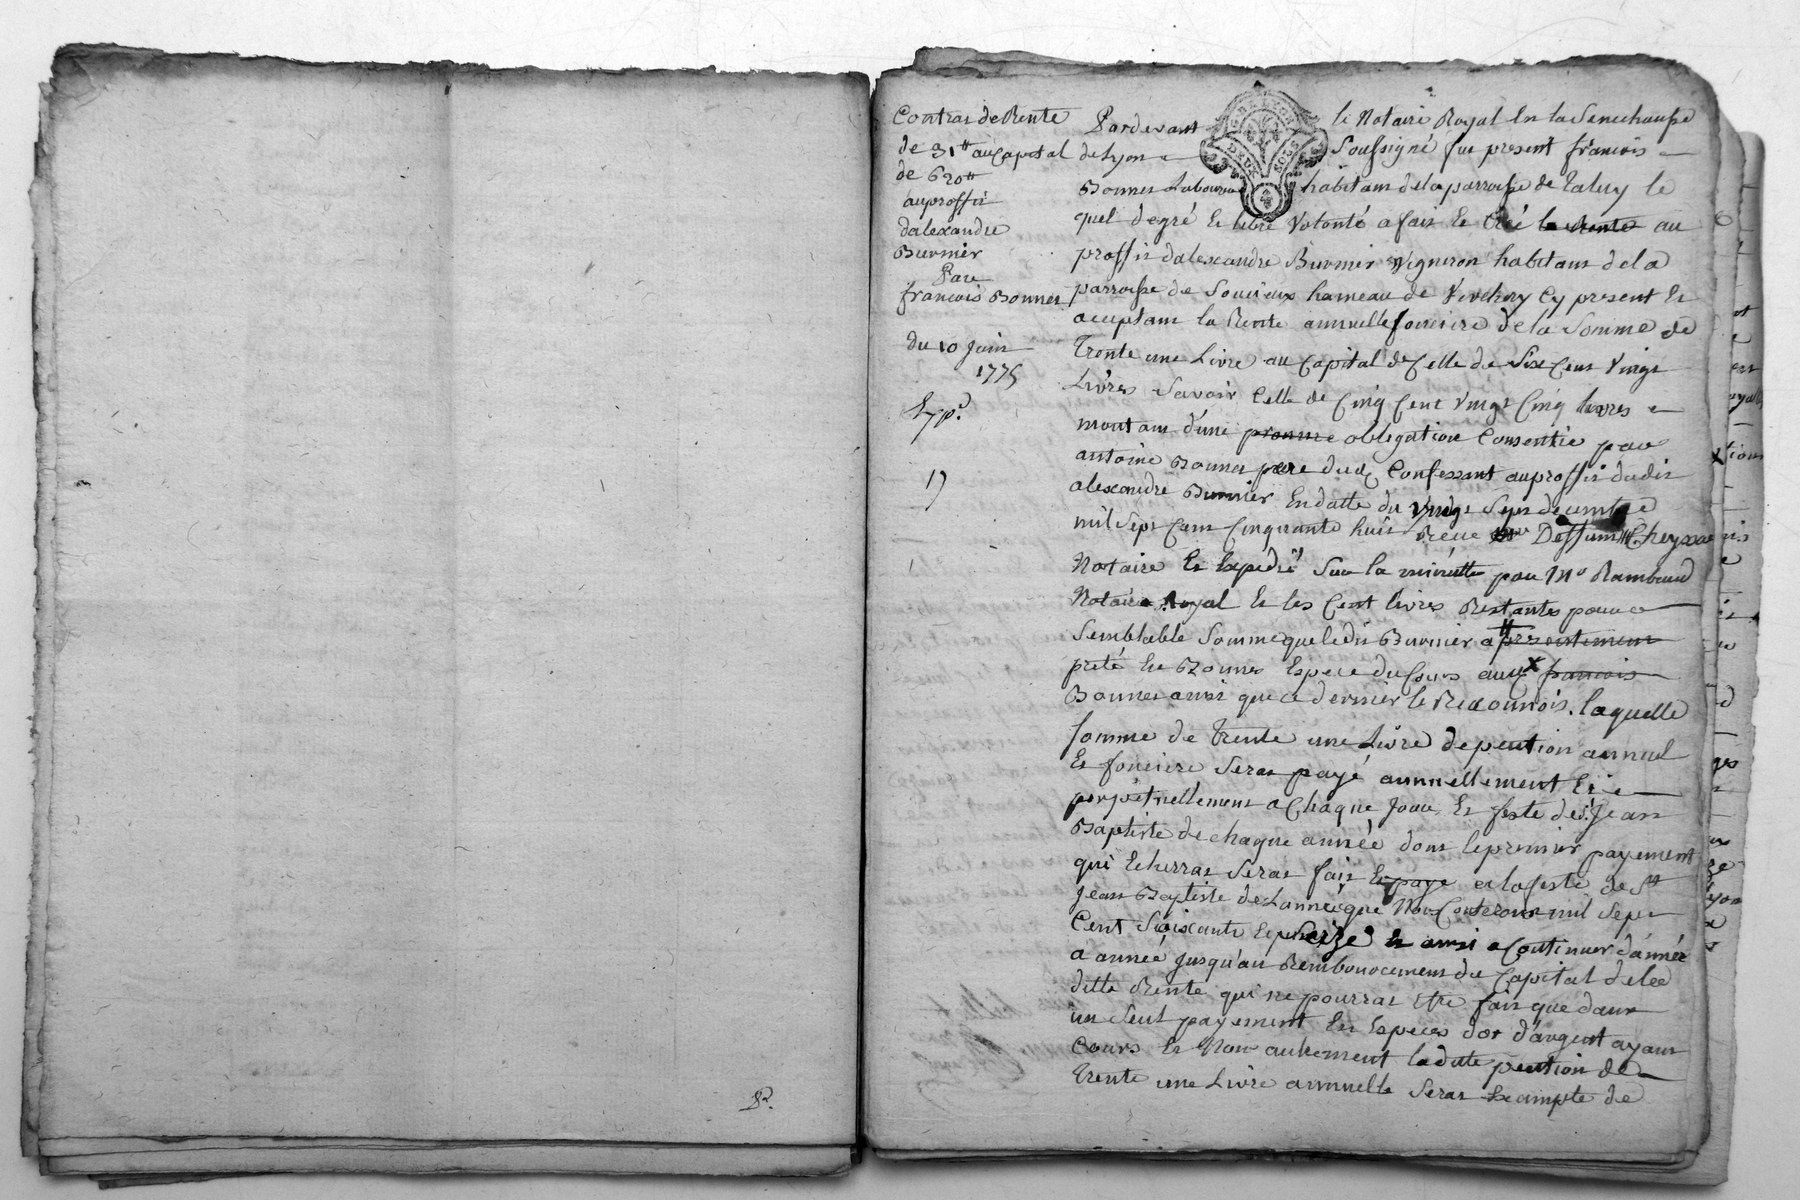 Contrat de Rente
de 31tt au Capital
de 620tt
au proffit
dalexandre
Burnier
Par
francois Bonnet
du 10 Juin
1775
hyp.
17
Pardevant le Notaire Royal En la Senechaussé
de Lyon Soussigné fut present francois
Bonnet Laboureur habitant de la parroisse de Taluy le
quel de gré Et libre Volonté a fait Et Créé la Rente au
proffit dalexandre Burnier Vigneron habitant de la
parroisse de Soucieux hameau de Verchery Cy present Et
aceptant la Rente annuelle fonciere de la Somme de
Trente une Livre au Capital de Celle de Six Cent Vingt
Livres Savoir Celle de Cinq Cent Vingt Cinq livres
montant d'une promme obligation Consentie par
antoine Bonnet pere dud Confessant au proffit dudit
alexandre Burnier En datte du Vingt Sept decembre
mil Sept Cent Cinquante huit Receue Deffunt Me Cheyzac
Notaire Et Expedié Sur la minutte par Me Rambaud
Notaire Royal Et les Cent livres Restantes pour
Semblable Somme que ledit Burnier a presentement
preté En Bonnes Espece du Cours aud francois
Bonnet ainsi que ce dernier le Reconnois. laquelle
Somme de Trente une Livre de pention annuel
Et fonciere Seras payé annuellement Et
perpetuellement a Chaque Jour Et feste de St Jean
Baptiste de chaque année dont le premier payement
qui Echerras Seras fait Et paye a la feste de St
Jean Baptiste de Lannée que Non Conterons mil Sept
Cent Soixante Et Seize Et ainsi a Continuer d'année
a année Jusqu'au Remboursement du Capital de la
ditte Rente qui ne pourras Etre fait que dans
un Seul payement En Especes d'or d'argent ayant
Cours Et Non autrement laditte pention de
Trente une Livre annuelle Seras Exampte de